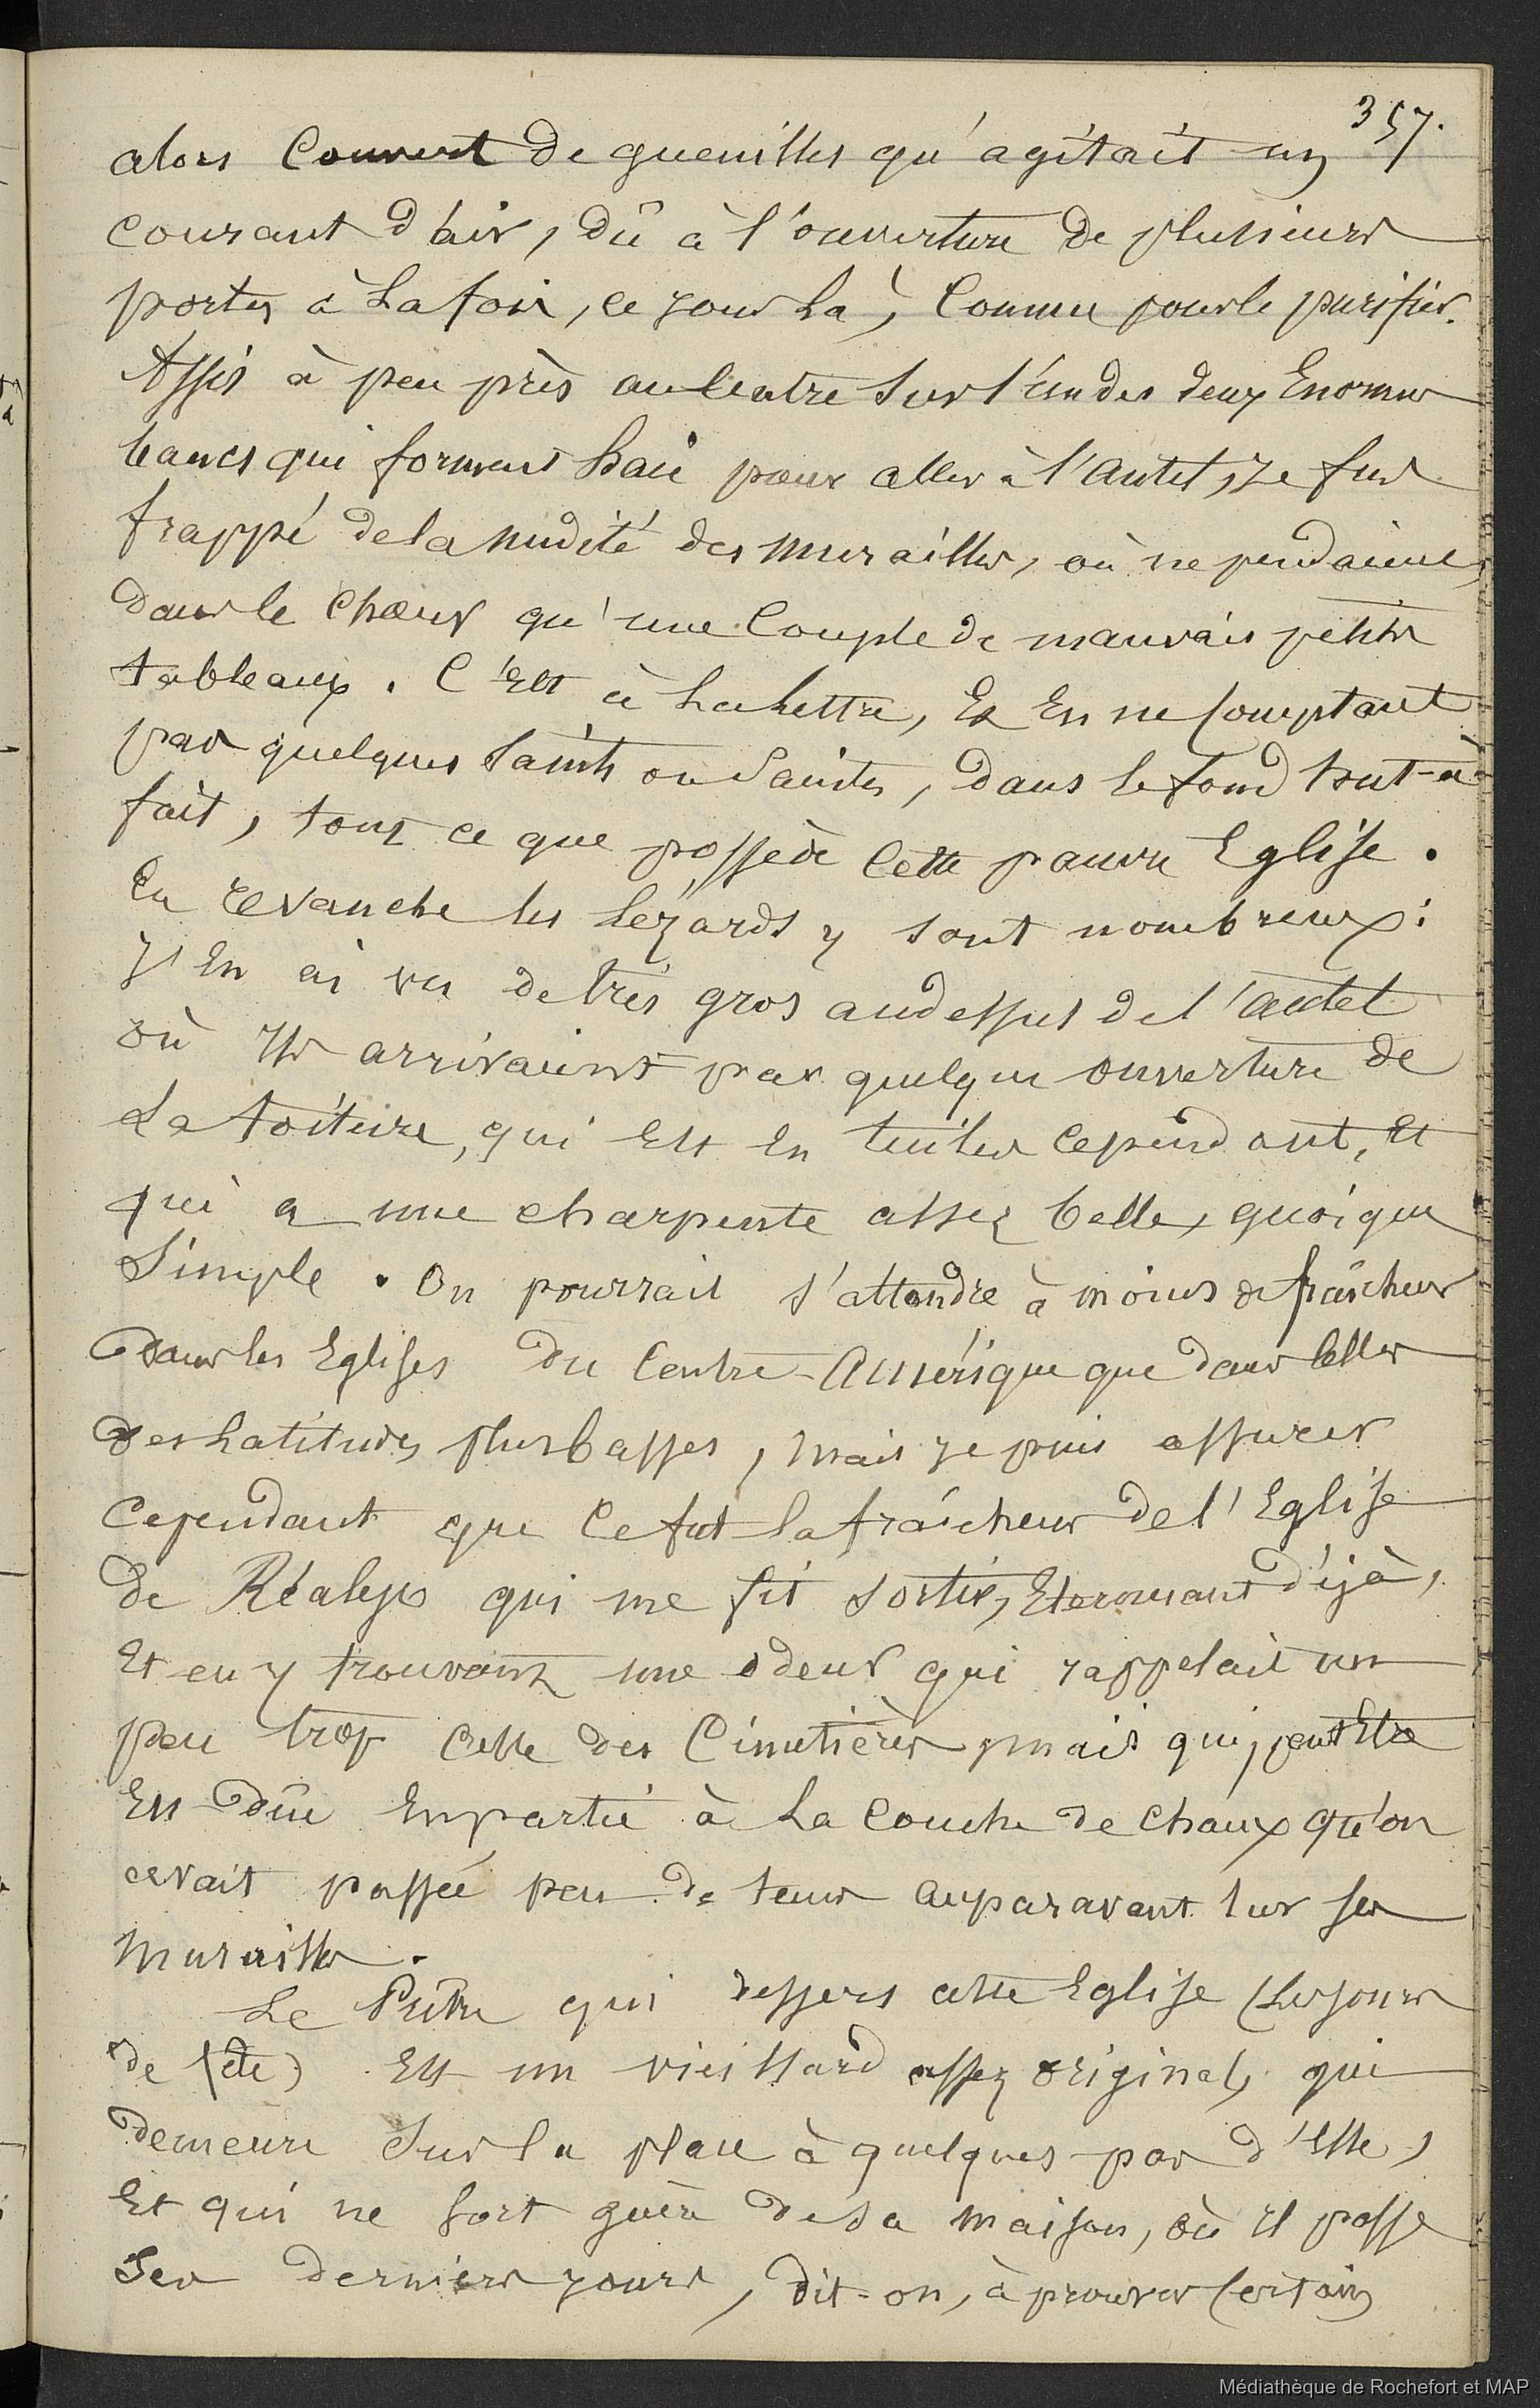 357.
alors Couvert de guenilles qu'agitait un
courant d'air, dû à l'ouverture de plusieurs
portes à la fois, ce jour là, Comme pour le purifier.
Assis à peu près au Centre sur l'un des deux Enormes
bancs qui forment haie pour aller à l'autel, je fus
frappé de la nudité des murailles, où ne pendaient,
dans le Chœur qu'une Couple de mauvais petits
tableaux. C'Est à la lettre, Et En ne Comptant
pas quelques Saints ou Saintes, dans le fond tout-à-
fait, tout ce que possède Cette pauvre Eglise.
En revanche les lézards y sont nombreux :
j'En ai vu de très gros au dessus de l'autel
où ils arrivaient par quelque ouverture de
La toiture, qui Est En tuiles cependant, Et
qui a une charpente assez belle, quoique
Simple. On pourrait s'attendre à moins de fraîcheur
dans les Eglises du Centre-Amérique que dans Celles
des Latitudes plus basses, mais je puis assurer
Cependant que Ce fut la fraîcheur de l'Eglise
de Réalejo qui me fit sortir, Eternuant déjà,
Et en y trouvant une odeur qui rappelait un
peu trop Celle des Cimetières, mais qui, peut Etre
Est dûe En partie à La Couche de Chaux qu'on
avait passée peu de tems auparavant sur ses
murailles.
Le Prêtre qui dessers cette Eglise (Les jours
de fête) Est un vieillard assez original, qui
demeure Sur la place à quelques pas d'Elle,
Et qui ne sort guère de sa maison, où il passe
Ses derniers jours, dit-on, à prouver Certain
Médiathèque de Rochefort et MAP